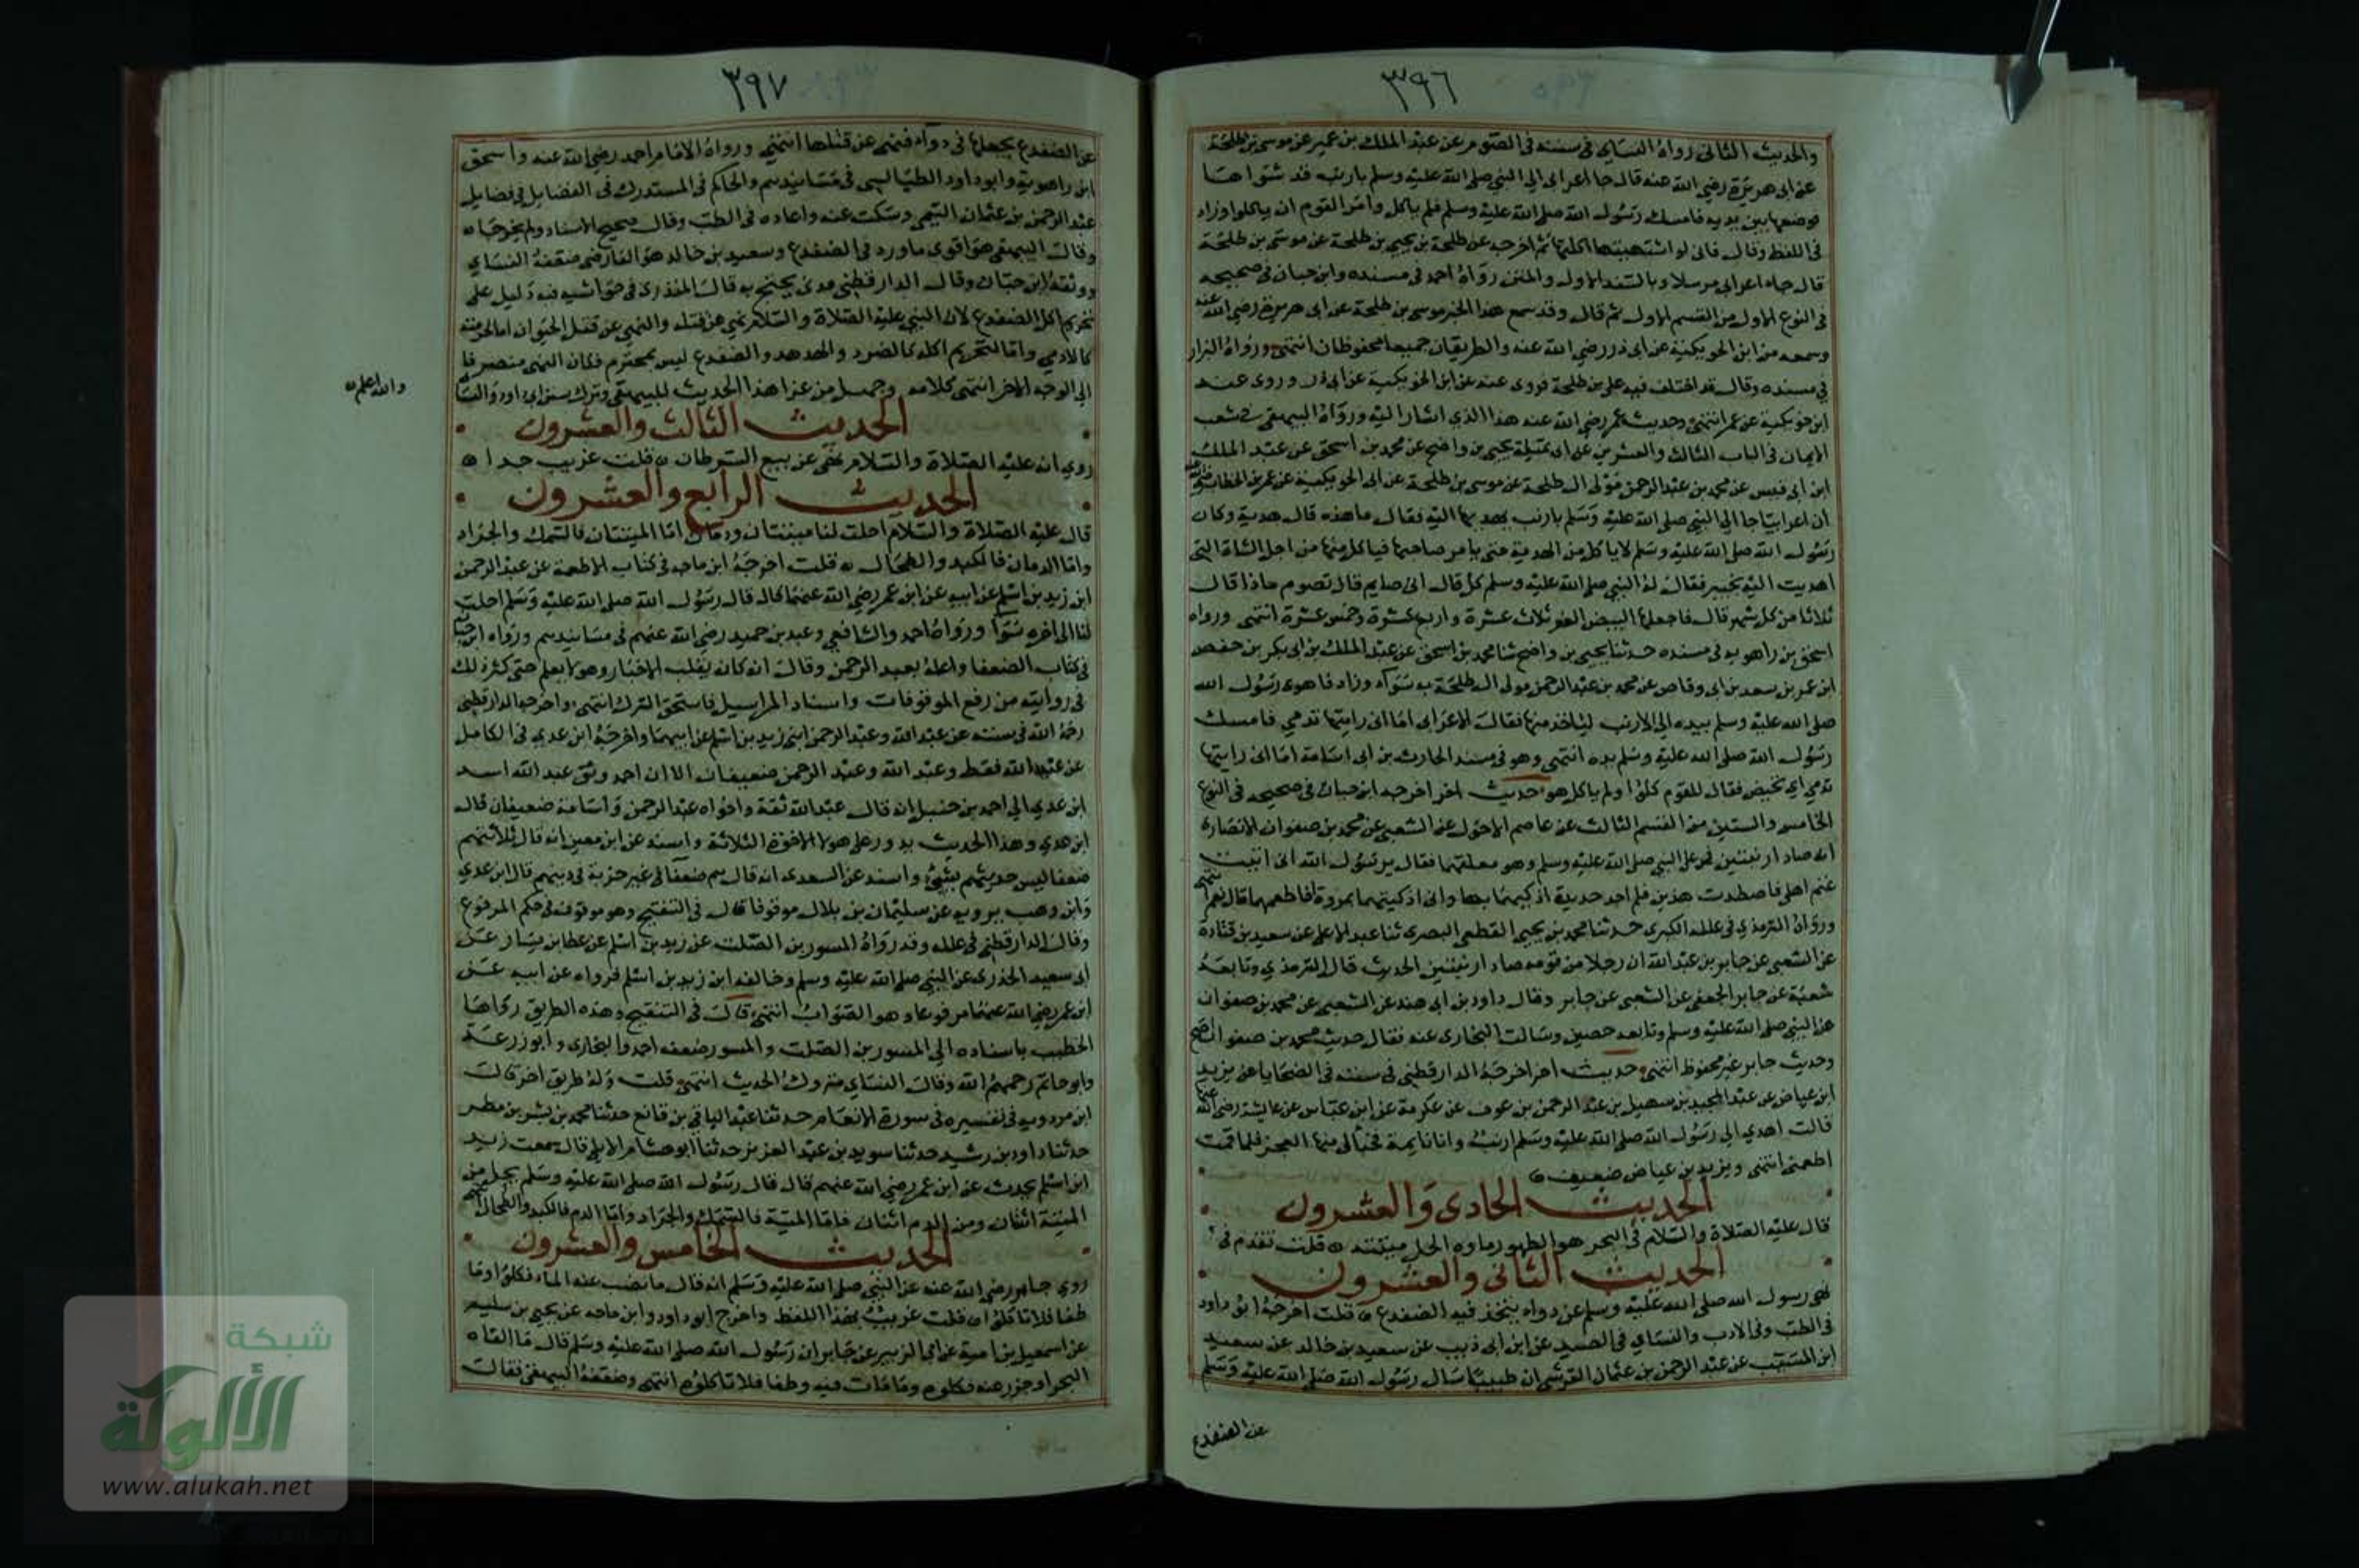 ٣٩٦
والحديث الثاني رواه النساي في سننه في الصوم عن عبد الملك بن عمير عن موسى بن طلحة
عن ابي هريرة رضي الله عنه قال جا اعرابي الي النبي صلى الله عليه وسلم بارنب قد شواها
فوضعها بين يديه فامسك رسول الله صلى الله عليه وسلم فلم ياكل وامر القوم ان ياكلوا وزاد
في اللفظ وقال فاني لو اشتهيتها اكلتها ثم اخرجه عن طلحة بن يحيى بن طلحة عن موسى بن طلحة
قال جاء اعرابي مرسلا وبالسند الاول والمتن رواه احمد في مسنده وابن حبان في صحيحه
في النوع الاول من القسم الاول ثم قال وقد سمع هذا الخبر موسى بن طلحة عن ابي هريرة رضي الله عنه
وسمعه من ابن الحوتكية عن ابي ذر رضي الله عنه والطريقان جميعا محفوظان انتهى ورواه البزار
في مسنده وقال قد اختلف فيه على بن طلحة فروى عنه عن ابن الحوتكية عن ابي ذر وروى عنه
ابن حوتكية عن عمر انتهى وحديث عمر رضي الله عنه هذا الذي اشار اليه ورواه البيهقي في شعب
الايمان في الباب الثالث والعشرين عن ابي تميلة يحيى بن واضح عن محمد بن اسحق عن عبد الملك
ابن ابي قيس عن محمد بن عبد الرحمن مولى ال طلحة عن موسى بن طلحة عن ابي الحوتكية عن عمر بن الخطاب
ان اعرابيا جا الي النبي صلى الله عليه وسلم بارنب يهديها اليه فقال ما هذه قال هدية وكان
رسول الله صلى الله عليه وسلم لا ياكل من الهدية حتى يامر صاحبها فياكل منها من اجل الشاة التي
اهديت اليه بخيبر فقال له النبي صلى الله عليه وسلم كل قال اني صايم قال تصوم ماذا قال
ثلاثا من كل شهر قال فاجعلها البيض الغر ثلاث عشرة واربع عشرة وخمس عشرة انتهى ورواه
اسحق بن راهويه في مسنده حدثنا يحيى بن واضح ثنا محمد بن اسحق عن عبد الملك بن ابي بكر بن حفص
ابن عمر بن سعد بن ابي وقاص عن محمد بن عبد الرحمن مولى ال طلحة به سواء وزاد فاهوى رسول الله
صلى الله عليه وسلم بيده الي الارنب لياخذ منها فقال الاعرابي اما اني رايتها تدمي فامسك
رسول الله صلى الله عليه وسلم يده انتهى وهو في مسند الحارث بن ابي اسامة اما اني رايتها
تدمي اي تحيض فقال للقوم كلوا ولم ياكل هو حديث اخر اخرجه ابن حبان في صحيحه في النوع
الخامس والستين من القسم الثالث عن عاصم الاحول عن الشعبي عن محمد بن صفوان الانصاري
انه صاد ارنبين فمر على النبي صلى الله عليه وسلم وهو معلقهما فقال يرسول الله اني اتيت
غنم اهلي فاصطدت هذين فلم اجد حديدة اذكيهما بها واني اذكيتهما بمروة افاطعمهما قال نعم انتهى
ورواه الترمذي في علله الكبرى حدثنا محمد بن يحيى القطعي البصري ثنا عبد الاعلى عن سعيد بن قتادة
عن الشعبي عن جابر بن عبد الله ان رجلا من قومه صاد ارنبين الحديث قال الترمذي وتابعه
شعبة عن جابر الجعفي عن الشعبي عن جابر وقال داود بن ابي هند عن الشعبي عن محمد بن صفوان
عن النبي صلى الله عليه وسلم وتابعه حصين وسالت البخاري عنه فقال حديث محمد بن صفوان اصح
وحديث جابر غير محفوظ انتهى حديث اخر اخرجه الدارقطني في سننه في الضحايا عن يزيد
ابن عياض عن عبد المجيد بن سهيل بن عبد الرحمن بن عوف عن عكرمة عن ابن عباس عن عايشة رضي الله عنها
قالت اهدي الي رسول الله صلى الله عليه وسلم ارنب وانا نايمة فخبا لي منها العجز فلما قمت
اطعمني انتهى ويزيد بن عياض ضعيف
الحديث الحادي والعشرون
قال عليه الصلاة والسلام في البحر هو الطهور ماوه الحل ميتته قلت تقدم في
الحديث الثاني والعشرون
نهى رسول الله صلى الله عليه وسلم عن دواء يتخذ فيه الضفدع قلت اخرجه ابو داود
في الطب وفي الادب والنساي في الصيد عن ابن ابي ذيب عن سعيد بن خالد عن سعيد
ابن المسيب عن عبد الرحمن بن عثمان القرشي ان طبيبا سال رسول الله صلى الله عليه وسلم
عن الضفدع
٣٩٧
عن الضفدع يجعلها في دواء فنهى عن قتلها انتهى ورواه الامام احمد رضي الله عنه واسحق
ابن راهويه وابو داود الطيالسي في مسانيدهم والحاكم في المستدرك في الفضايل في فضايل
عبد الرحمن بن عثمان التيمي وسكت عنه واعاده في الطب وقال صحيح الاسناد ولم يخرجاه
وقال البيهقي هو اقوى ما ورد في الضفدع وسعيد بن خالد هو القارضي ضعفه النساي
ووثقه ابن حبان وقال الدارقطني مدني يحتج به قال المنذري في حواشيه فيه دليل على
تحريم اكل الضفدع لان النبي عليه الصلاة والسلام نهي عن قتله والنهي عن قتل الحيوان اما لحرمته
كالادمي واما لتحريم اكله كالصرد والهدهد والضفدع ليس بمحترم فكان النهي منصرفا
الي الوجه الاخر انتهى كلامه وجهل من عزا هذا الحديث للبيهقي وترك سنن ابي داود والنساي
والله اعلم
الحديث الثالث والعشرون
روي انه عليه الصلاة والسلام نهى عن بيع السرطان قلت غريب جدا
الحديث الرابع والعشرون
قال عليه الصلاة والسلام احلت لنا ميتتان ودمان اما الميتتان فالسمك والجراد
واما الدمان فالكبد والطحال قلت اخرجه ابن ماجه في كتاب الاطعمة عن عبد الرحمن
ابن زيد بن اسلم عن ابيه عن ابن عمر رضي الله عنهما قال قال رسول الله صلى الله عليه وسلم احلت
لنا الى اخره سوآ ورواه احمد والشافعي وعبد بن حميد رضي الله عنهم في مسانيدهم ورواه ابن حبان
في كتاب الضعفا واعله بعبد الرحمن وقال انه كان يقلب الاخبار وهو لا يعلم حتى كثر ذلك
في روايته من رفع الموقوفات واسناد المراسيل فاستحق الترك انتهى واخرجه الدارقطني
رحمه الله في سننه عن عبد الله وعبد الرحمن ابني زيد بن اسلم عن ابيهما واخرجه ابن عدي في الكامل
عن عبد الله فقط وعبد الله وعبد الرحمن ضعيفان الا ان احمد وثق عبد الله اسند
ابن عدي الي احمد بن حنبل انه قال عبد الله ثقة واخواه عبد الرحمن واسامة ضعيفان قال
ابن عدي وهذا الحديث يدور على هولا الاخوة الثلاثة واسند عن ابن معين انه قال ثلاثتهم
ضعفا ليس حديثهم بشيء واسند عن السعدي انه قال هم ضعفآ في غير خربة في دينهم قال ابن عدي
وابن وهب يرويه عن سليمان بن بلال موقوفا قال في التنقيح وهو موقوف في حكم المرفوع
وقال الدارقطني في علله وقد رواه المسور بن الصلت عن زيد بن اسلم عن عطا بن يسار عن
ابي سعيد الخدري عن النبي صلى الله عليه وسلم وخالفه ابن زيد بن اسلم فرواه عن ابيه عن
ابن عمر رضي الله عنهما مرفوعا وهو الصواب انتهى قال في التنقيح وهذه الطريق رواها
الخطيب باسناده الي المسور بن الصلت والمسور ضعفه احمد والبخاري وابو زرعة
وابو حاتم رحمهم الله وقال النساي متروك الحديث انتهى قلت وله طريق اخر قال
ابن مردويه في تفسيره في سورة الانعام حدثنا عبد الباقي بن قانع حدثنا محمد بن بشر بن مطر
حدثنا داود بن رشيد حدثنا سويد بن عبد العزيز حدثنا ابو هشام الايلي قال سمعت زيد
ابن اسلم يحدث عن ابن عمر رضي الله عنهم قال قال رسول الله صلى الله عليه وسلم يحل من
الميتة اثنان ومن الدم اثنان فاما الميتة فالسمك والجراد واما الدم فالكبد والطحال انتهى
الحديث الخامس والعشرون
روي جابر رضي الله عنه عن النبي صلى الله عليه وسلم انه قال ما نضب عنه الماء فكلوا وما
طفا فلا تاكلوا قلت غريب بهذا اللفظ واخرج ابو داود وابن ماجه عن يحيى بن سليم
عن اسمعيل بن امية عن ابي الزبير عن جابر ان رسول الله صلى الله عليه وسلم قال ما القاه
البحر او جزر عنه فكلوه وما مات فيه وطفا فلا تاكلوه انتهى وضعفه البيهقي فقال
شبكة
الألوكة
www.alukah.net